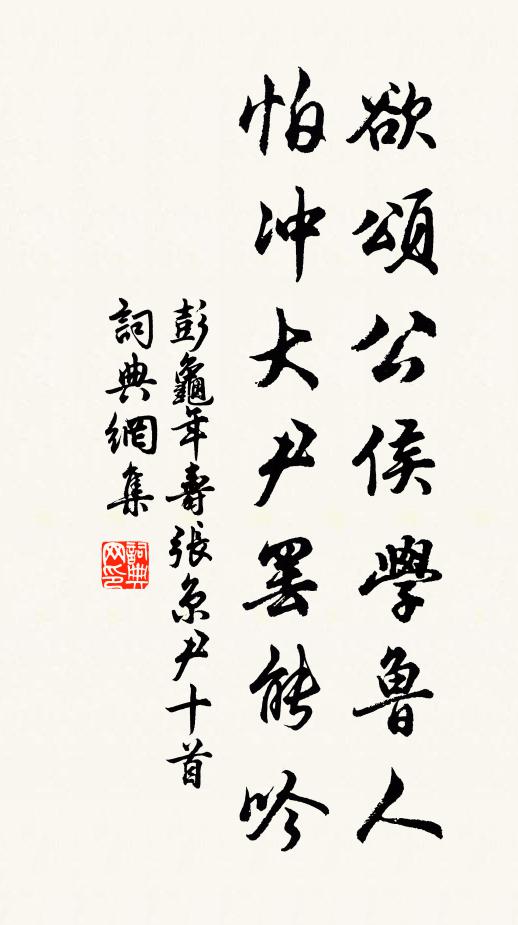 欲頌公侯學魯人
怕冲大尹罢能吟
彭龜年壽張京尹十首
詞典網集
詞典网印